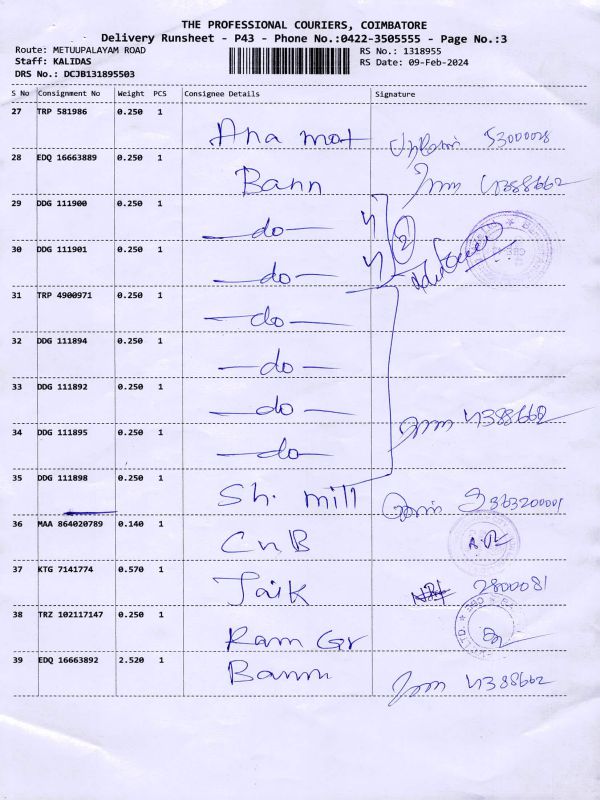 THE PROFESSIONAL COURIERS, COIMBATORE
Delivery Runsheet - P43 - Phone No.:0422-3505555 - Page No.:3
Route: METUUPALAYAM ROAD RS No.: 1318955
Staff: KALIDAS RS Date: 09-Feb-2024
DRS No.: DCJB131895503
S No Consignment No Weight PCS Consignee Details Signature
27 TRP 581986 0.250 1 Ana mot
28 EDQ 16663889 0.250 1 Bann 4388662
29 DDG 111900 0.250 1 do
2
30 DDG 111901 0.250 1 do
31 TRP 4900971 0.250 1 do
32 DDG 111894 0.250 1 do
33 DDG 111892 0.250 1 do
4388662
34 DDG 111895 0.250 1 do
35 DDG 111898 0.250 1 Sh. mill
36 MAA 864020789 0.140 1 CnB
37 KTG 7141774 0.570 1 Jaik 2800081
38 TRZ 102117147 0.250 1 Ram Gr
39 EDQ 16663892 2.520 1 Bannn 4388662